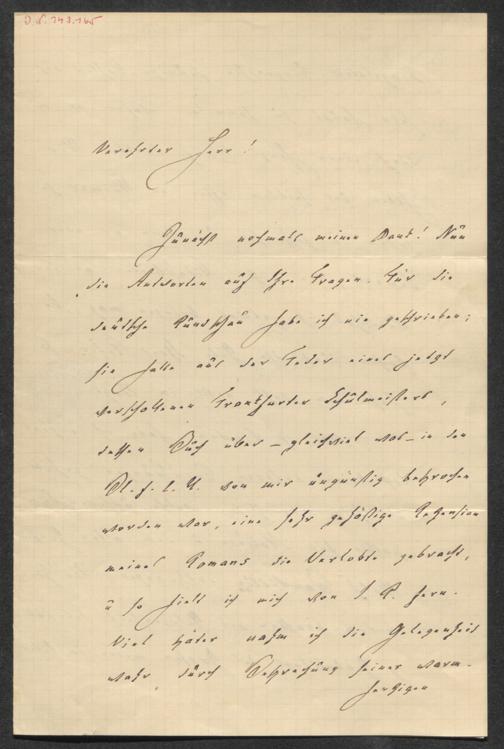 J. N. 143.165
Verehrter Herr!
Zunächst nochmals meinen Dank! Nun
die Antworten auf Ihre Fragen. Für die
deutsche Rundschau habe ich nie geschrieben;
sie hatte aus der Feder eines jetzt
verschollenen Frankfurter Schulmeisters,
dessen Buch über – gleichviel was – in den
Bl. f. l. U. von mir ungünstig besprochen
worden war, eine sehr gehäßige Rezension
meines Romans die Verlobte gebracht,
u so hielt ich mich von J. R. fern.
Viel später nahm ich die Gelegenheit
wahr durch Besprechung seiner warm-
herzigen